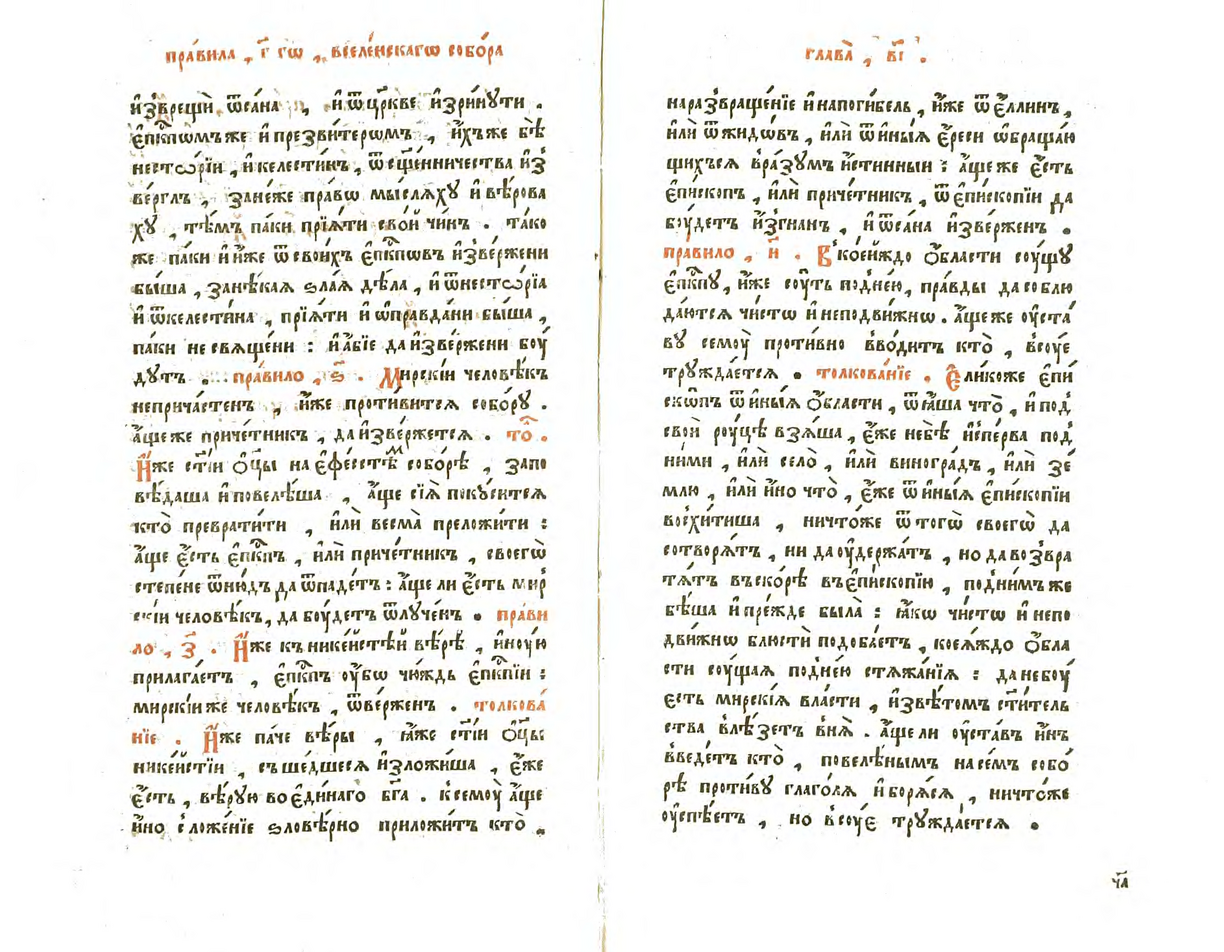 пра́вила , г҃ гѡ , вселе́нскагѡ собо́ра
и҆зврещѝ ѿса́на , и҆ ѿцр҃кве и҆зри́нути .
є҆пк҃пѡмъже и҆ презви́терѡмъ , и҆́хъже бѣ̀
несто́рїи , и҆ келести́нъ , ѿсщ҃е́нничества и҆з
ве́рглъ , зане́же пра́вѡ мы́слѧхꙋ и҆ вѣ́рова
хꙋ , тѣ́мъ па́ки прїѧ́ти сво́й чи́нъ . та́ко
же па́ки и҆ и҆́же ѿсвои́хъ є҆пк҃пѡвъ и҆зве́ржени
бы́ша , занѣ́каѧ ѕла́ѧ дѣ́ла , и҆ ѿнесто́рїа
и҆ ѿкелести́на , прїѧ́ти и҆ ѡ҆правда́ни бы́ша ,
па́ки не свѧще́ни : и҆ а҆́бїе да и҆зве́ржени боу́
дꙋтъ . пра́вило , ѕ҃ . Мирскі́и человѣ́къ
неприча́стенъ , и҆́же проти́витсѧ собо́рꙋ .
а҆́ще же приче́тникъ , да и҆зве́ржетсѧ . то̑ .
И҆́же ст҃і́и ѻ҆ц҃ы на є҆фе́сстѣмъ собо́рѣ , запо
вѣ́даша и҆ повелѣ́ша , а҆́ще сїѧ̀ покꙋси́тсѧ
кто̀ преврати́ти , и҆лѝ весма̀ преложи́ти :
а҆́ще є҆́сть є҆пк҃пъ , и҆лѝ приче́тникъ , своегѡ̀
степе́не ѿню́дъ да ѿпаде́тъ : а҆́ще ли є҆́сть мир
скі́и человѣ́къ, да боу́детъ ѿлꙋче́нъ . пра́ви
ло , з҃ . И҆́же къ нике́йстѣй вѣ́рѣ , и҆ноу́ю
прилага́етъ , є҆пк҃пъ оу҆́бѡ чю́ждь є҆пк҃пїи :
мирскі́иже человѣ́къ , ѿве́рженъ . толкова́
нїе . И҆́же па́че вѣ́ры , ꙗ҆́же ст҃і́и ѻ҆ц҃ы
нике́йстїи , съше́дшесѧ и҆зложи́ша , є҆́же
є҆́сть , вѣ́рꙋю во є҆ди́наго бг҃а . к семоу̀ а҆́ще
и҆́но сложе́нїе ѕловѣ́рно приложи́тъ кто̀ ,
глава̀ , в҃і .
на развраще́нїе и҆ напоги́бель , и҆́же ѿ є҆́ллинъ ,
и҆лѝ ѿжидѡ́въ , и҆лѝ ѿ и҆ны́ѧ є҆́реси ѡ҆браща́ю
щихъсѧ вра́зꙋмъ и҆́стинныи : а҆́ще же є҆́сть
є҆пи́скопъ , и҆лѝ приче́тникъ , ѿ є҆писко́пїи да
боу́детъ и҆згна́нъ , и҆ ѿса́на и҆зве́рженъ .
пра́вило , и҃ . В коейждо ѻ҆́бласти соу́щꙋ
є҆пк҃пꙋ , и҆́же соу́ть подне́ю , пра́вды да соблю
да́ютсѧ чи́стѡ и҆ неподви́жнѡ . а҆́ще же оу҆ста́
вꙋ семоу̀ проти́вно вво́дитъ кто̀ , всоу́е
трꙋжда́етсѧ . толкова́нїе . Е҆ли́коже є҆пи́
скѡпъ ѿ и҆ны́ѧ ѻ҆́бласти , ѿꙗ҆́ша что̀ , и҆ под
свои́ роу́цѣ взѧ́ша , є҆́же небѣ̀ и҆спе́рва под
ни́ми , и҆лѝ село̀ , и҆лѝ виногра́дъ , и҆лѝ зе́
млю , и҆лѝ и҆́но что̀ , є҆́же ѿ и҆ны́ѧ є҆писко́пїи
восхи́тиша , ничто́же ѿ тогѡ̀ своегѡ̀ да
сотворѧ́тъ , ни да оу҆держа́тъ , но да возвра
тѧ́тъ вско́рѣ въ є҆писко́пїю , подни́мъже
бѣ́ша и҆ пре́жде была̀ : ꙗ҆́кѡ чи́стѡ и҆ непо
дви́жнѡ блюстѝ подоба́етъ , коеѧ́ждо ѻ҆бла
сти соу́щаѧ подне́ю стѧжа́нїѧ : да небоу́
есть мирскі́ѧ вла́сти , и҆звѣ́томъ ст҃и́тель
ства влѣ́зетъ внѧ̀ . а҆́ще ли оу҆ста́въ и҆́нъ
введе́тъ кто̀ , повелѣ́нымъ на се́мъ собо́
рѣ проти́вꙋ глаго́лѧ и҆ борѧ́сѧ , ничто́же
оу҆спѣ́етъ , но всоу́е трꙋжда́етсѧ .
ч҃а